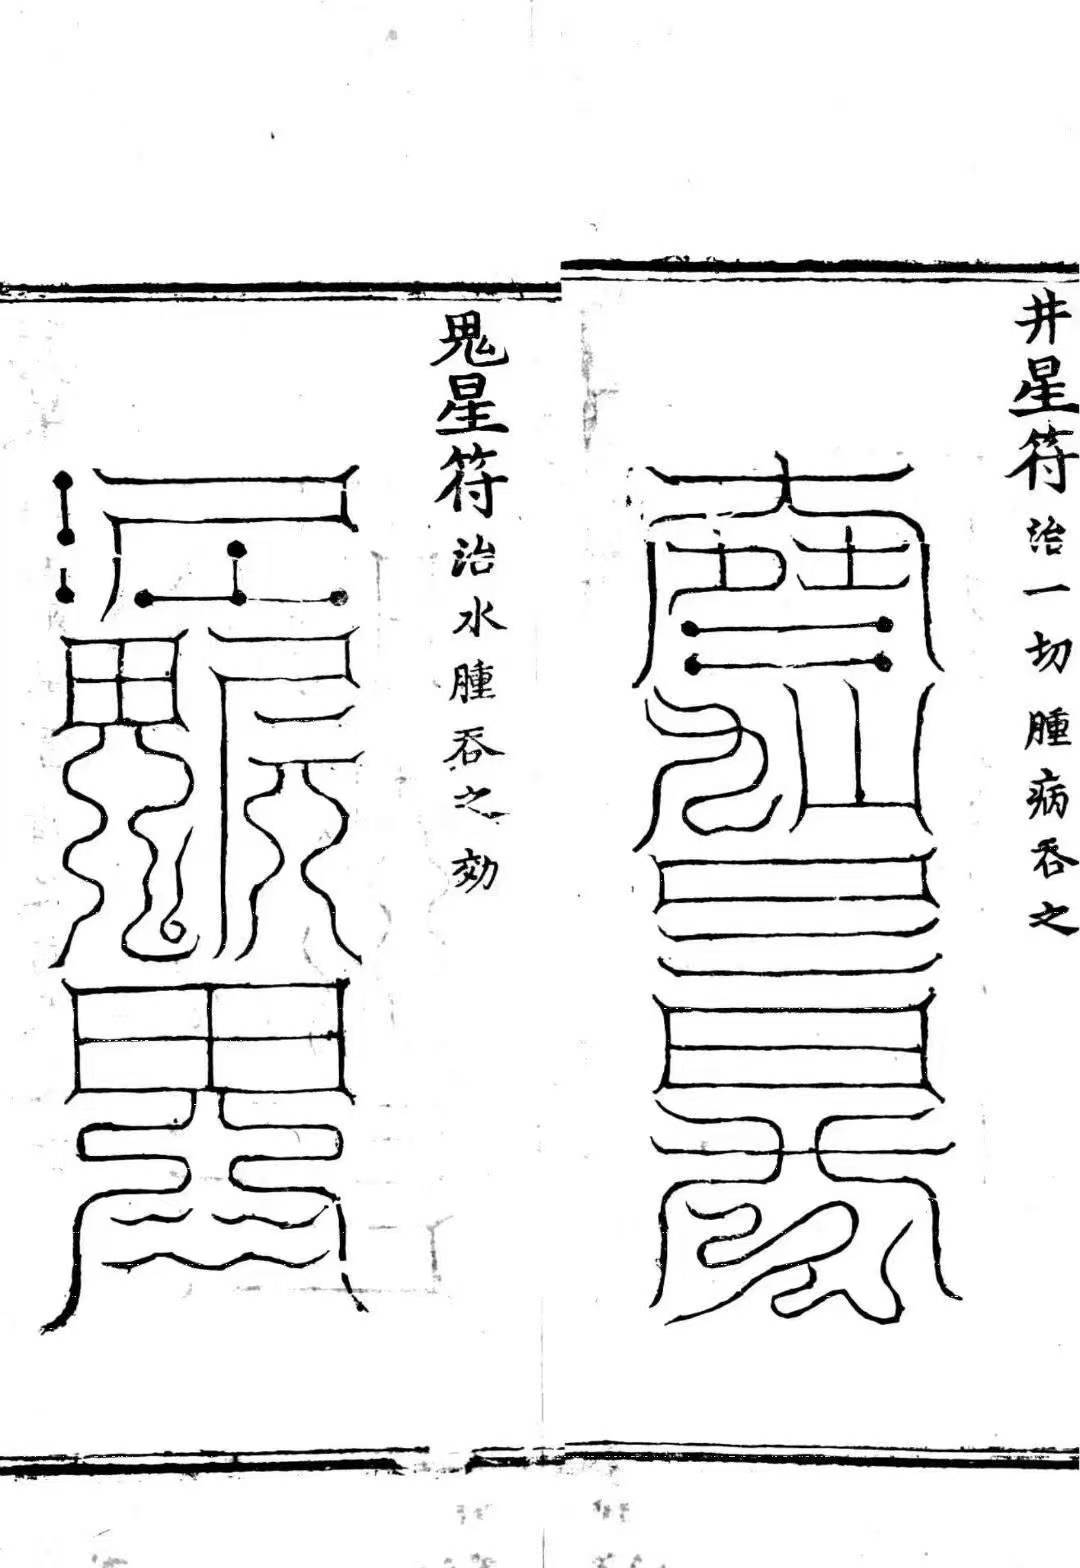 井星符治一切腫病吞之
鬼星符治水腫吞之効